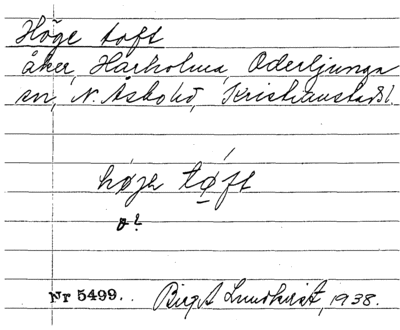 Höge toft
åker, Harholma, Oderljunga
sn, N. Åsbo hd, Kristianstads l.
høje tǿft
ø?
Nr 5499. Birgit Lundkvist, 1938.